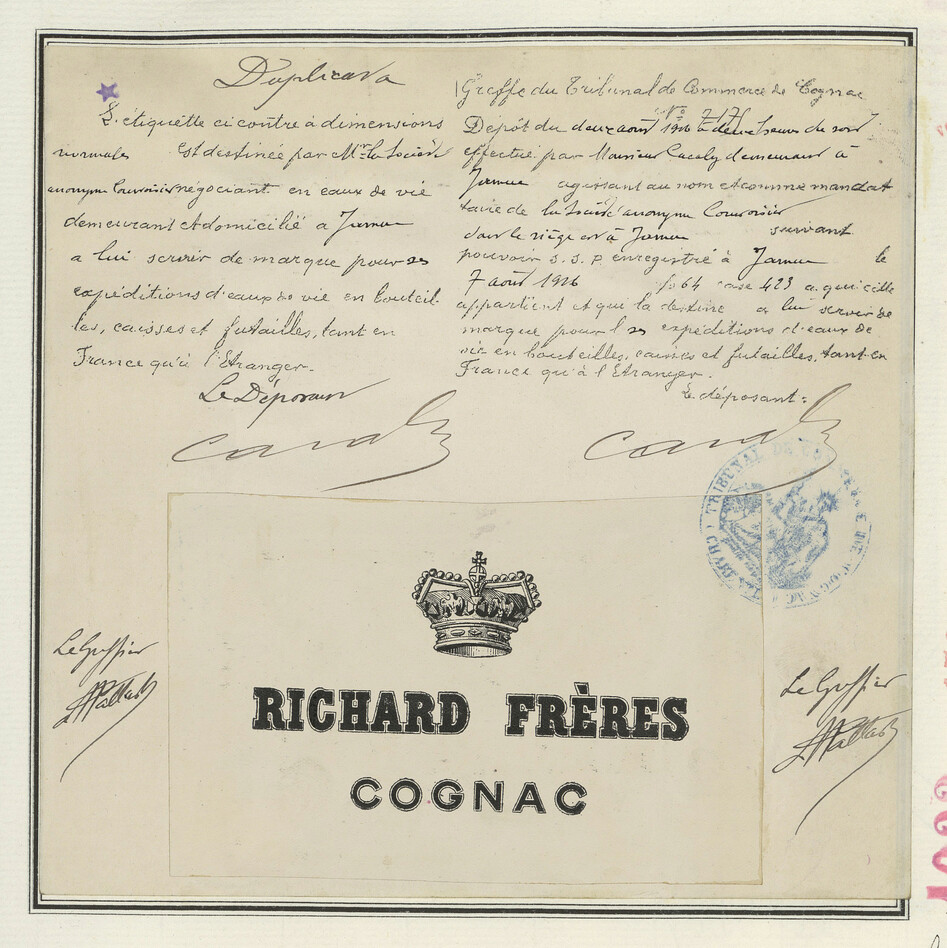 Duplicata
L'étiquette ci contre à dimensions
normales est destinée par Mr la Société
anonyme Courvoisier négociant en eaux de vie
demeurant et domicilié à Jarnac
a lui servir de marque pour ses
expéditions d'eaux de vie en bouteil-
les, caisses et futailles, tant en
France qu'à l'Etranger.
Le Déposant
Greffe du Tribunal de Commerce de Cognac
No 7175
Dépôt du deux août 1916 à deux heures du soir
effectué par Monsieur demeurant à
Jarnac agissant au nom et comme mandat
taire de la Société anonyme Courvoisier
dont le siège est à Jarnac suivant
pouvoir S.S.P enregistré à Jarnac le
7 août 1916 fo 64 case 423 a qui elle
appartient et qui la destine a lui servir de
marque pour ses expéditions d'eaux de
vie en bouteilles, caisses et futailles, tant en
France qu'à l'Etranger.
Le déposant:
TRIBUNAL DE COMMERCE DE COGNAC
Le Greffier
Le Greffier
RICHARD FRÈRES
COGNAC